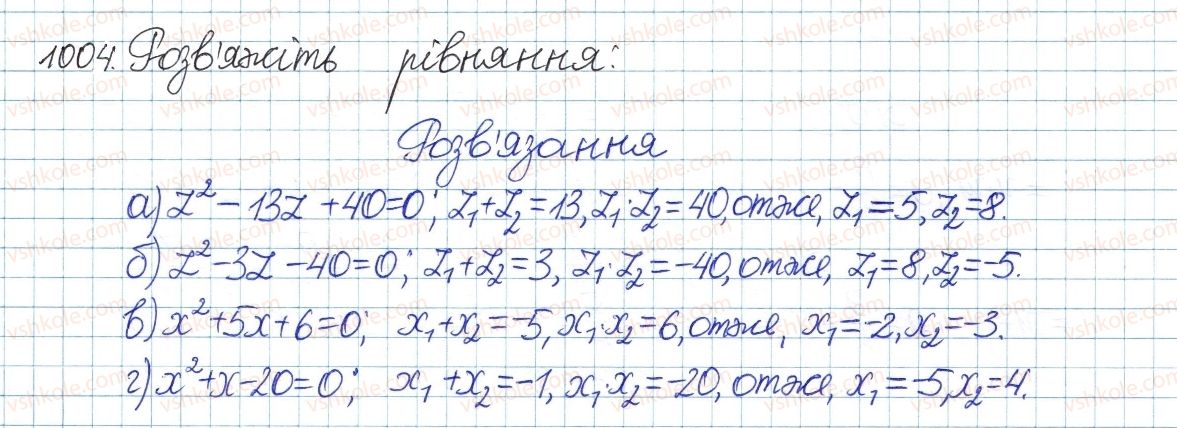 1004. Розв'яжіть рівняння:
Розв'язання
а) z² - 13z + 40 = 0; z₁ + z₂ = 13, z₁·z₂ = 40, отже, z₁ = 5, z₂ = 8.
б) z² - 3z - 40 = 0; z₁ + z₂ = 3, z₁·z₂ = -40, отже, z₁ = 8, z₂ = -5.
в) x² + 5x + 6 = 0; x₁ + x₂ = -5, x₁·x₂ = 6, отже, x₁ = -2, x₂ = -3.
г) x² + x - 20 = 0; x₁ + x₂ = -1, x₁·x₂ = -20, отже, x₁ = -5, x₂ = 4.